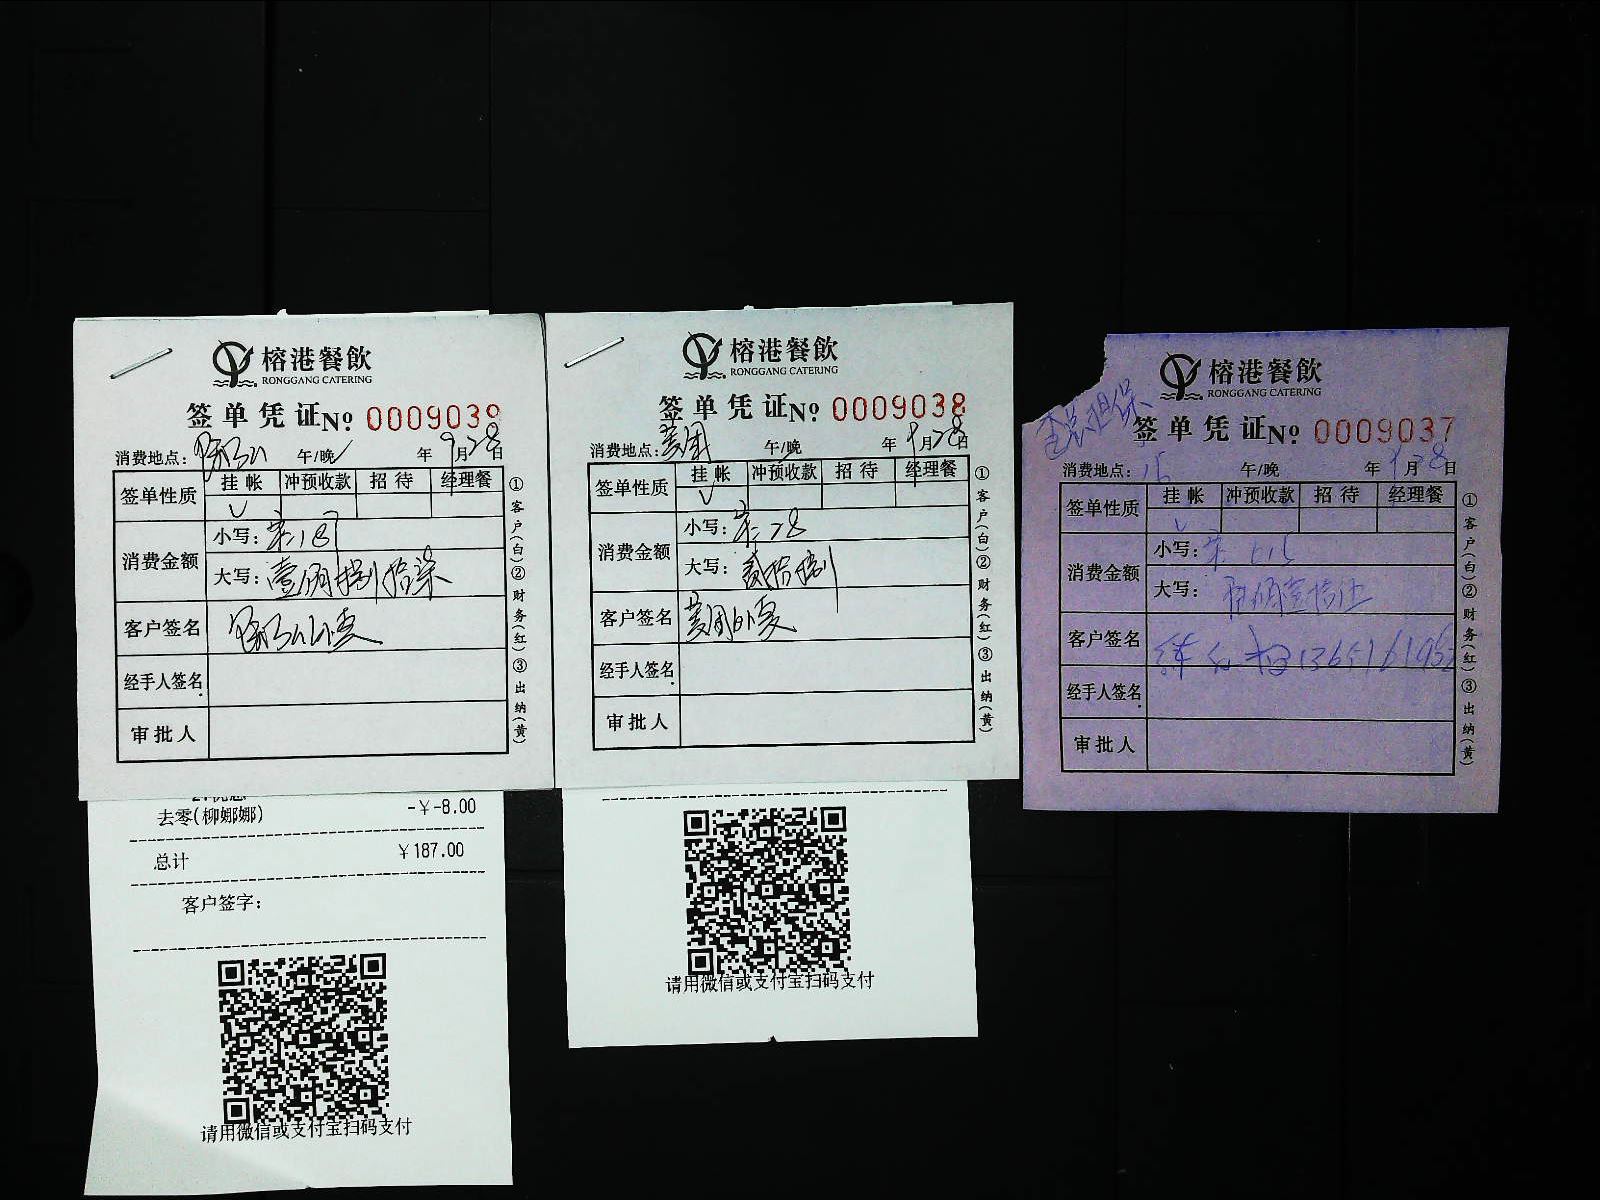 榕港餐飲
RONGGANG CATERING
签单凭证 No 0009039
消费地点: 午/晚 年 9月28日
签单性质 挂帐 冲预收款 招待 经理餐
消费金额 小写: 187
大写: 壹佰捌拾柒
客户签名
经手人签名
审批人
①客户(白)②财务(红)③出纳(黄)
去零(柳娜娜) -¥-8.00
总计 ¥187.00
客户签字:
请用微信或支付宝扫码支付
榕港餐飲
RONGGANG CATERING
签单凭证 No 0009038
消费地点: 美团 午/晚 年 9月28日
签单性质 挂帐 冲预收款 招待 经理餐
消费金额 小写: 28
大写: 贰拾捌
客户签名 美团外卖
经手人签名
审批人
①客户(白)②财务(红)③出纳(黄)
请用微信或支付宝扫码支付
担保
榕港餐飲
RONGGANG CATERING
签单凭证 No 0009037
消费地点: 午/晚 年 9月28日
签单性质 挂帐 冲预收款 招待 经理餐
消费金额 小写:
大写:
客户签名
经手人签名
审批人
①客户(白)②财务(红)③出纳(黄)